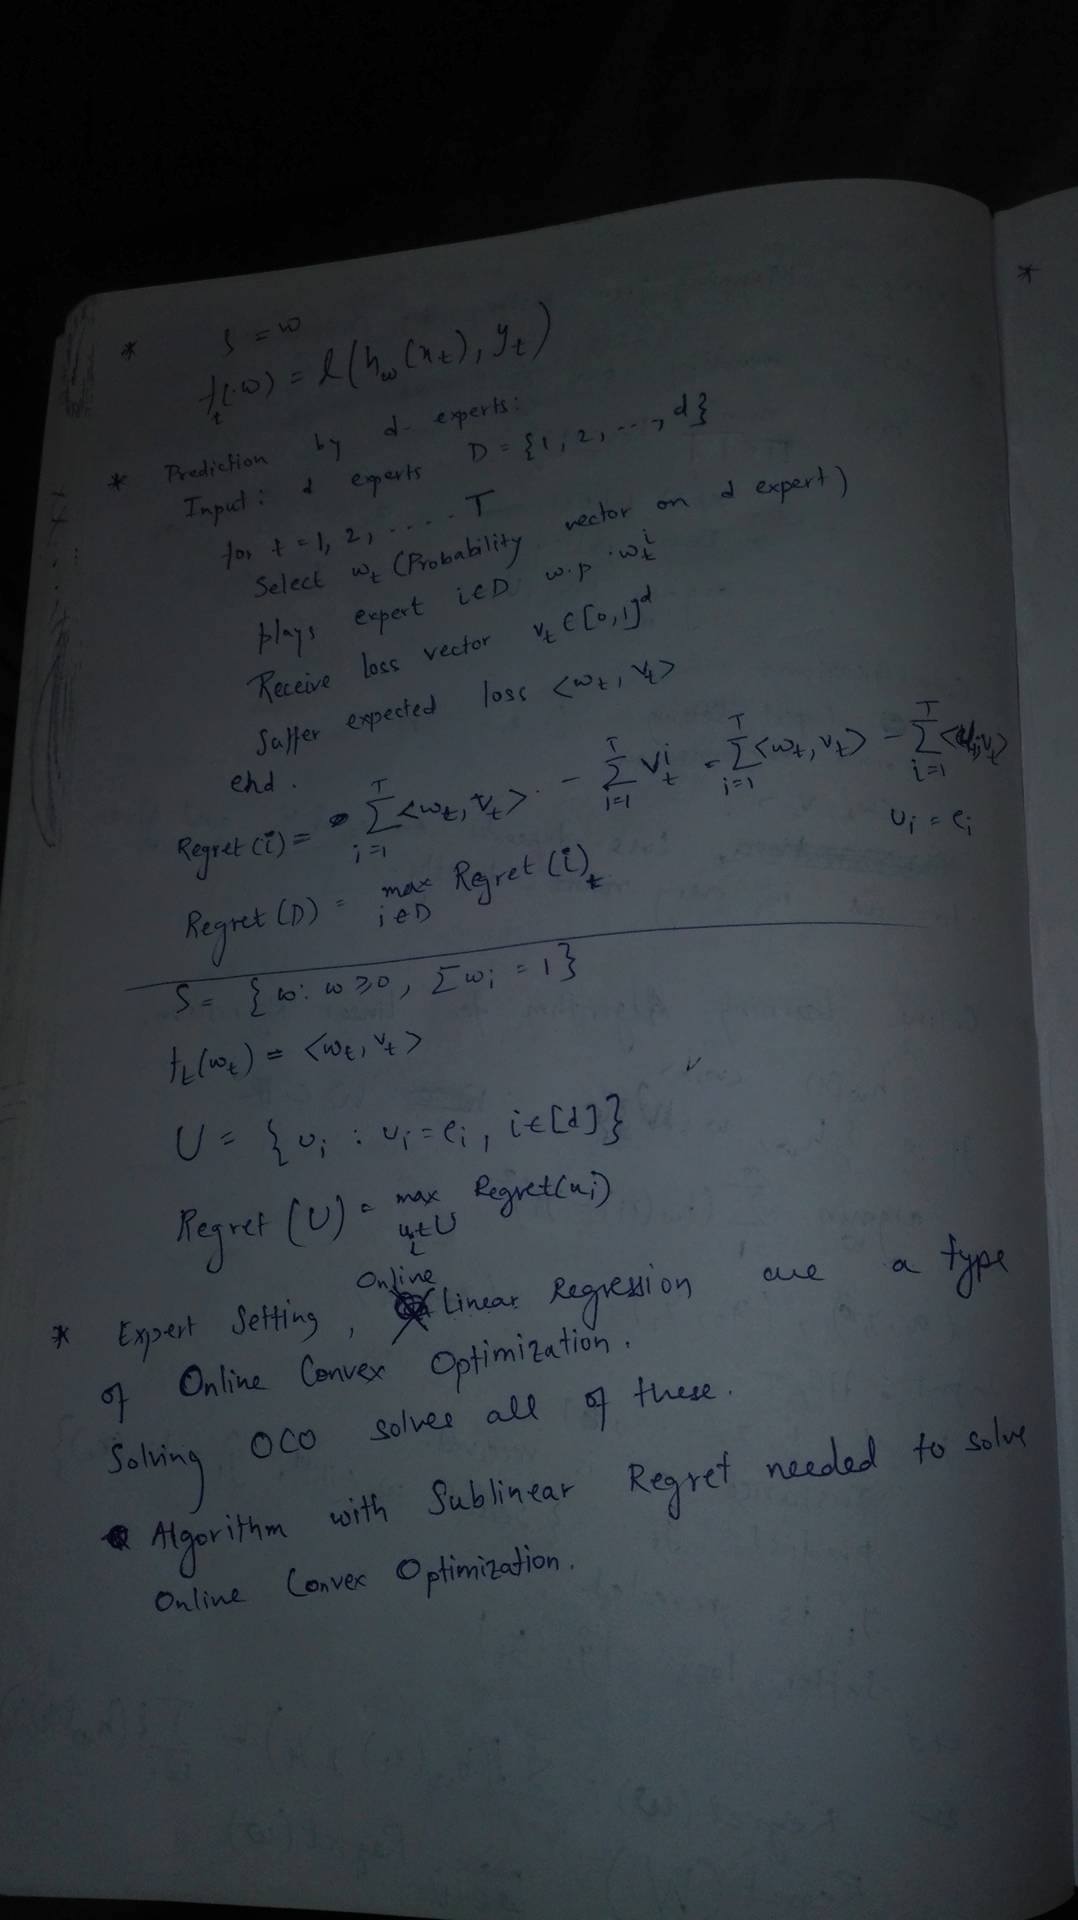 * S = W
f_t(w) = l(h_w(x_t), y_t)
* Prediction by d- experts:
Input: d experts D = {1, 2, ..., d}
for t = 1, 2, ..... T
Select w_t (Probability vector on d expert)
plays expert i∈D w.p. w_t^i
Receive loss vector v_t ∈ [0,1]^d
Suffer expected loss <w_t, v_t>
end.
Regret(i) = Σ_{i=1}^T <w_t, v_t> - Σ_{i=1}^T v_t^i = Σ_{i=1}^T <w_t, v_t> - Σ_{i=1}^T <u_i, v_t>
u_i = e_i
Regret(D) = max_{i∈D} Regret(i)
S = {w: w ≥ 0, Σw_i = 1}
f_t(w_t) = <w_t, v_t>
U = {u_i : u_i = e_i, i∈[d]}
Regret(U) = max_{u_i∈U} Regret(u_i)
* Expert Setting, Online Linear Regression are a type
of Online Convex Optimization.
Solving OCO solves all of these.
Algorithm with Sublinear Regret needed to solve
Online Convex Optimization.
*